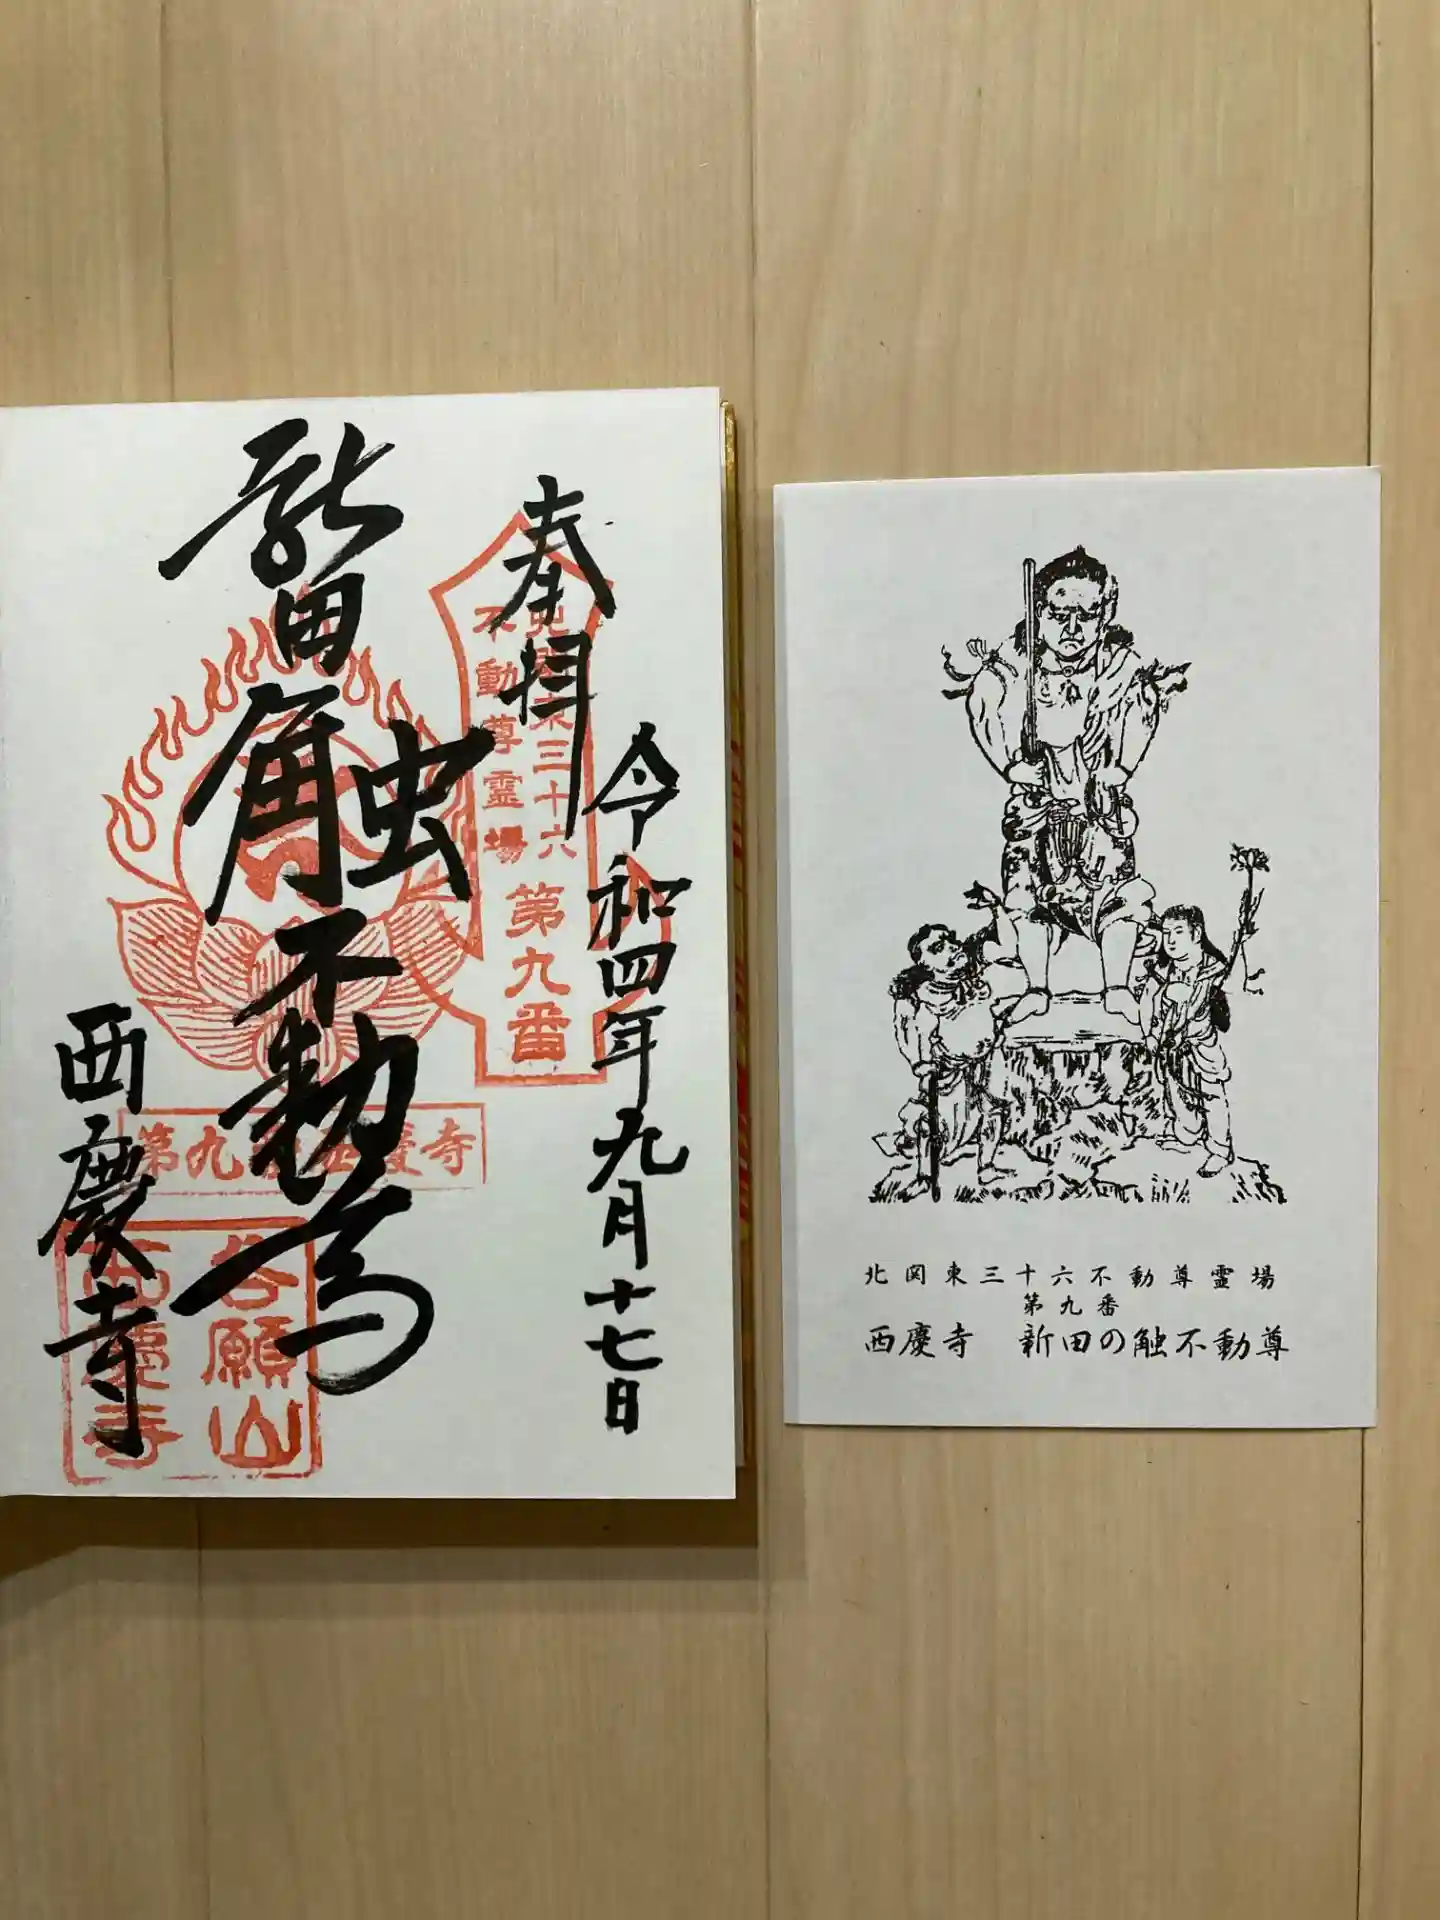 奉拝
令和四年九月十七日
新田触不動尊
西慶寺
北関東三十六
不動尊霊場
第九番
第九番西慶寺
答願山
西慶寺
北関東三十六不動尊霊場
第九番
西慶寺 新田の触不動尊